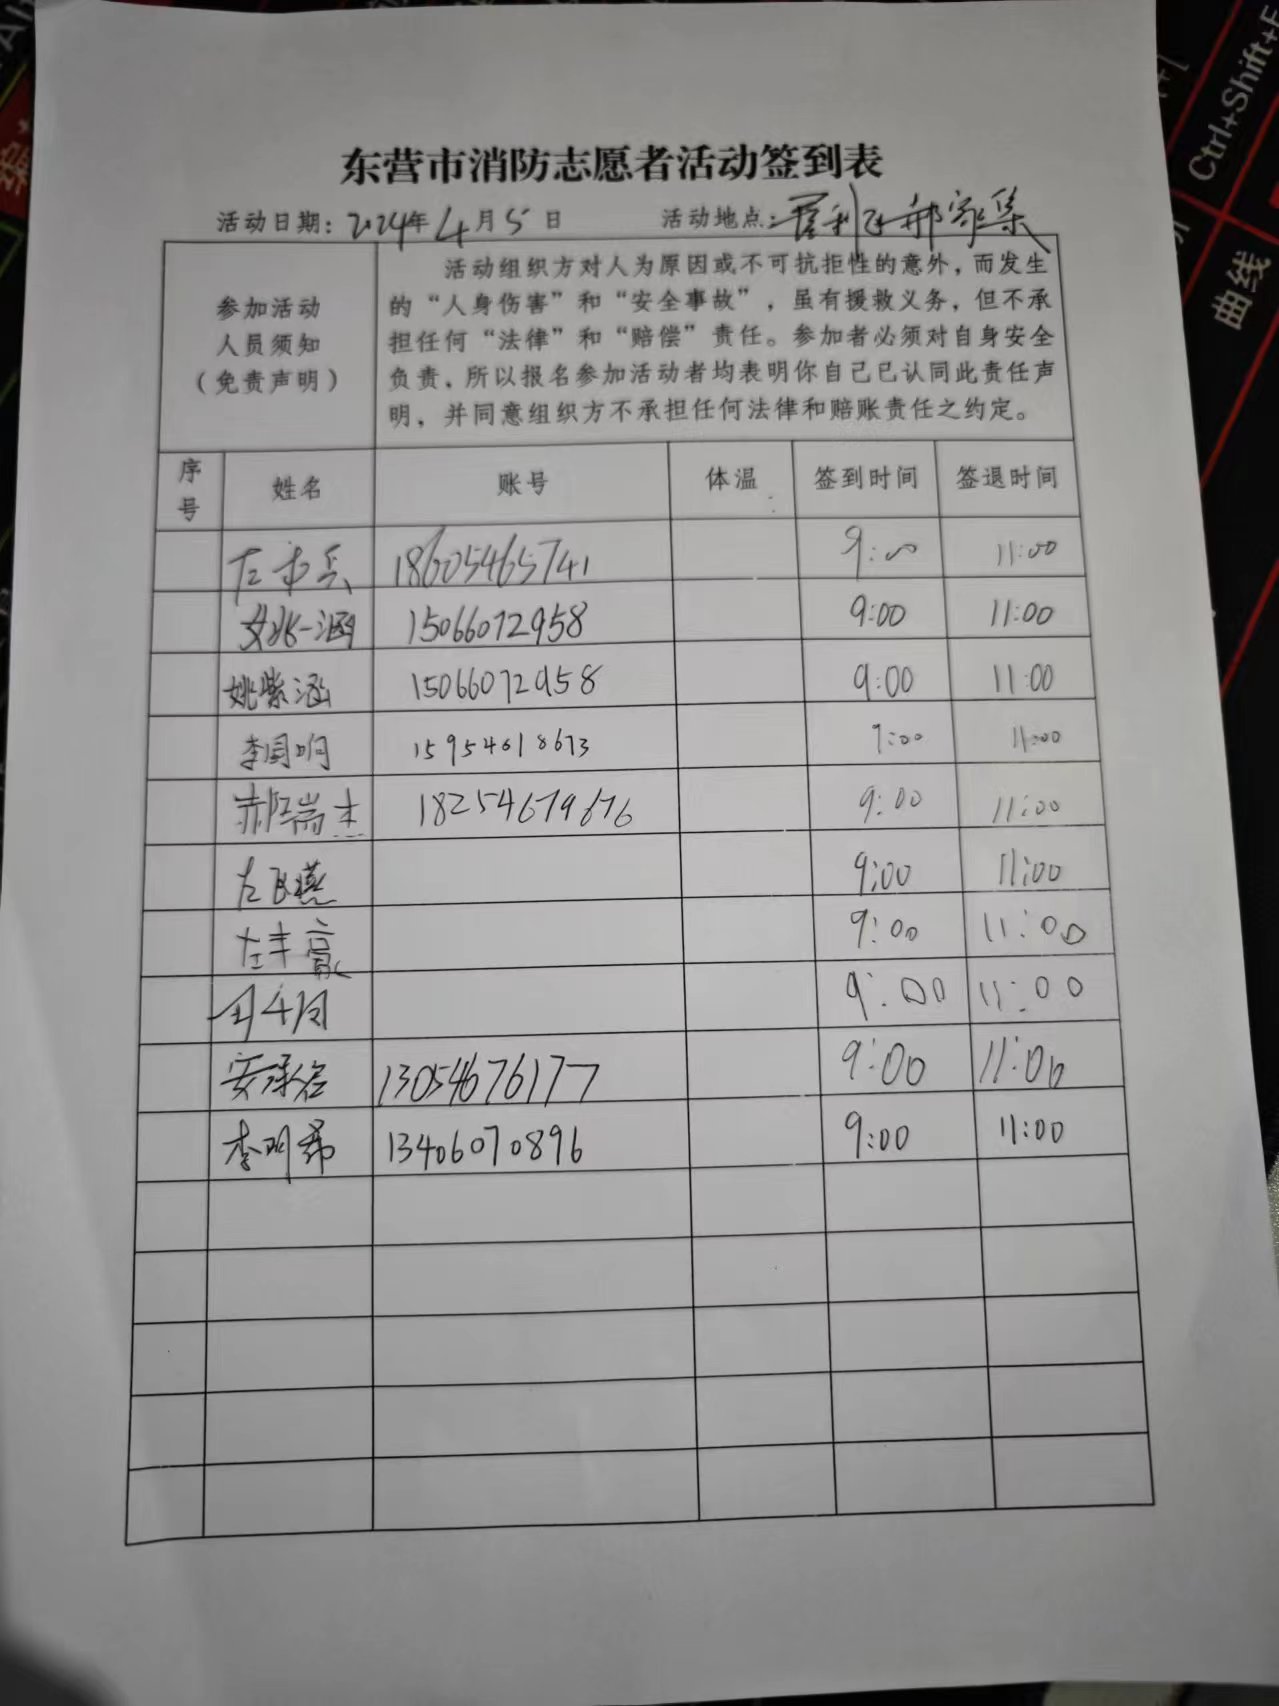 东营市消防志愿者活动签到表
活动日期：2024年4月5日 活动地点：利 郝家集
参加活动
人员须知
（免责声明）
活动组织方对人为原因或不可抗拒性的意外，而发生
的“人身伤害”和“安全事故”，虽有援救义务，但不承
担任何“法律”和“赔偿”责任。参加者必须对自身安全
负责，所以报名参加活动者均表明你自己已认同此责任声
明，并同意组织方不承担任何法律和赔账责任之约定。
序号 姓名 账号 体温 签到时间 签退时间
左 兵 18605465741 9:00 11:00
姚一涵 15066072958 9:00 11:00
姚紫涵 15066072958 9:00 11:00
李国响 15954618673 9:00 11:00
郝瑞杰 18254679676 9:00 11:00
左飞燕 9:00 11:00
左丰豪 9:00 11:00
9:00 11:00
安承名 13054676177 9:00 11:00
李明希 13406070896 9:00 11:00
Ctrl+Shift+F
曲线